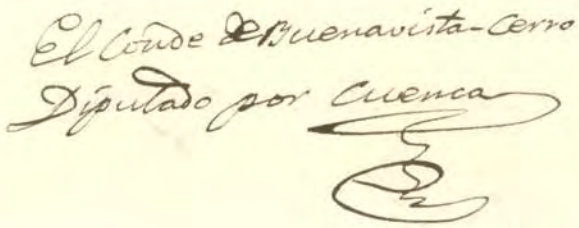 El Conde de Buenavista-Cerro
Diputado por Cuenca